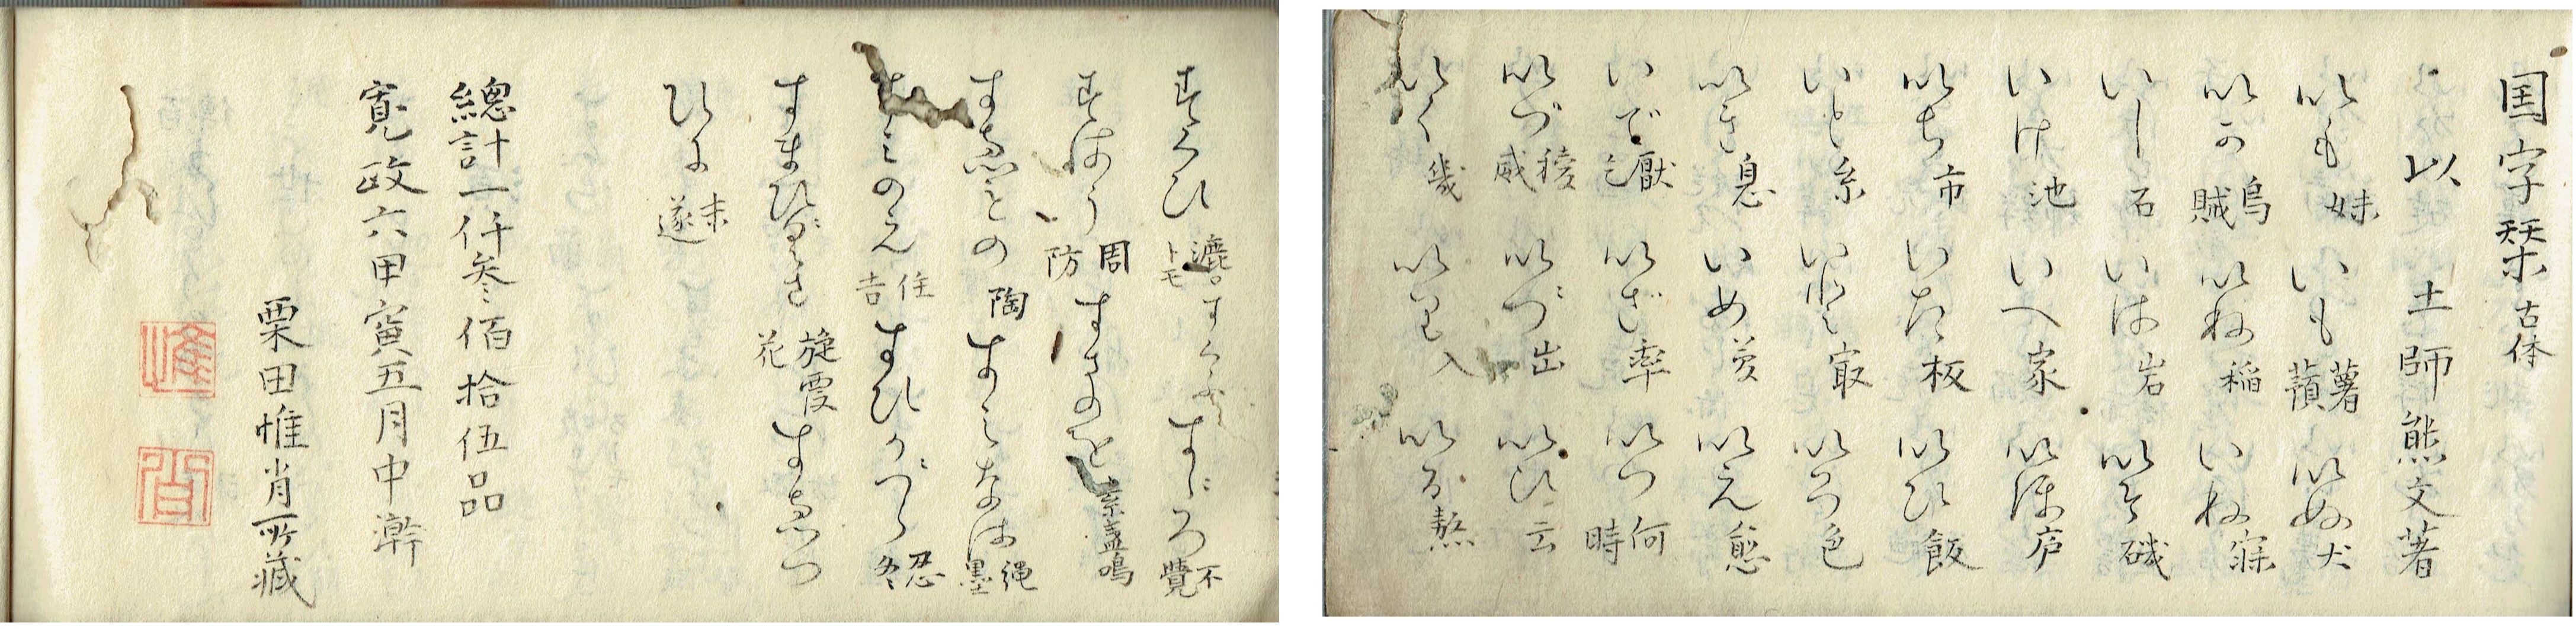 国字栞 古体
以 土師熊文著
いも 妹 いも 薯蕷 いぬ 犬
いか 烏賊 いね 稲 いね 寐
いし 石 いは 岩 いそ 磯
いけ 池 いへ 家 いほ 庐
いち 市 いた 板 いひ 飯
いと 糸 いと 㝡 いろ 色
いき 息 いめ 夢 いえ 愈
いで 厭乞 いざ 率 いつ 何時
いづ 稜威 いづ 出 いひ 云
いく 幾 いり 入 いる 熬
すくひ 漉トモ すくふ すゞろ 不覺
すはう 周防 すさのを 素盞嗚
すゑもの 陶 すみなは 墨縄
すみのえ 住吉 すひかづら 忍冬
すまひぐさ 旋覆花 すゑつ
ひに 末遂
總計一仟参佰拾伍品
寛政六甲寅五月中澣
栗田惟肖所藏
惟
肖